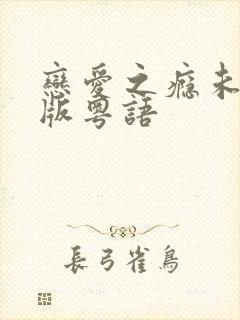 戀愛之癮未
版粵語
長弓雀鳥